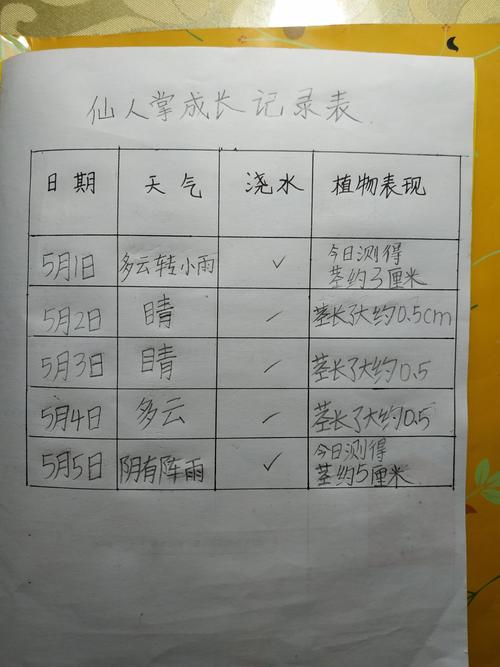 仙人掌成长记录表
日期 天气 浇水 植物表现
5月1日 多云转小雨 ✓ 今日测得
茎约3厘米
5月2日 晴 - 茎长了大约0.5cm
5月3日 晴 - 茎长了大约0.5
5月4日 多云 - 茎长了大约0.5
5月5日 阴有阵雨 ✓ 今日测得
茎约5厘米